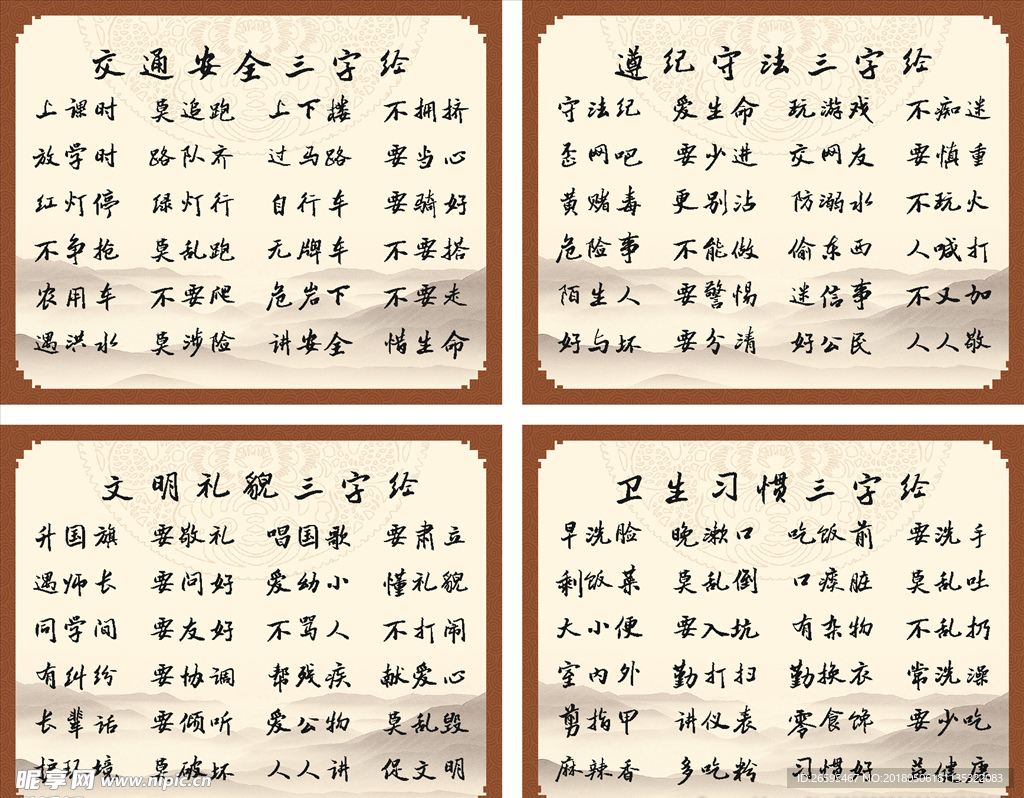 交通安全三字经
上课时 莫追跑 上下楼 不拥挤
放学时 路队齐 过马路 要当心
红灯停 绿灯行 自行车 要骑好
不争抢 莫乱跑 无牌车 不要搭
农用车 不要爬 危岩下 不要走
遇洪水 莫涉险 讲安全 惜生命
遵纪守法三字经
守法纪 爱生命 玩游戏 不痴迷
歪网吧 要少进 交网友 要慎重
黄赌毒 更别沾 防溺水 不玩火
危险事 不能做 偷东西 人喊打
陌生人 要警惕 迷信事 不又加
好与坏 要分清 好公民 人人敬
文明礼貌三字经
升国旗 要敬礼 唱国歌 要肃立
遇师长 要问好 爱幼小 懂礼貌
同学间 要友好 不骂人 不打闹
有纠纷 要协调 帮残疾 献爱心
长辈话 要倾听 爱公物 莫乱毁
护环境 莫破坏 人人讲 促文明
昵享网 www.nipic.cn
卫生习惯三字经
早洗脸 晚漱口 吃饭前 要洗手
剩饭菜 莫乱倒 口痰脏 莫乱吐
大小便 要入坑 有杂物 不乱扔
室内外 勤打扫 勤换衣 常洗澡
剪指甲 讲仪表 零食馋 要少吃
麻辣香 多吃粉 习惯好 健康